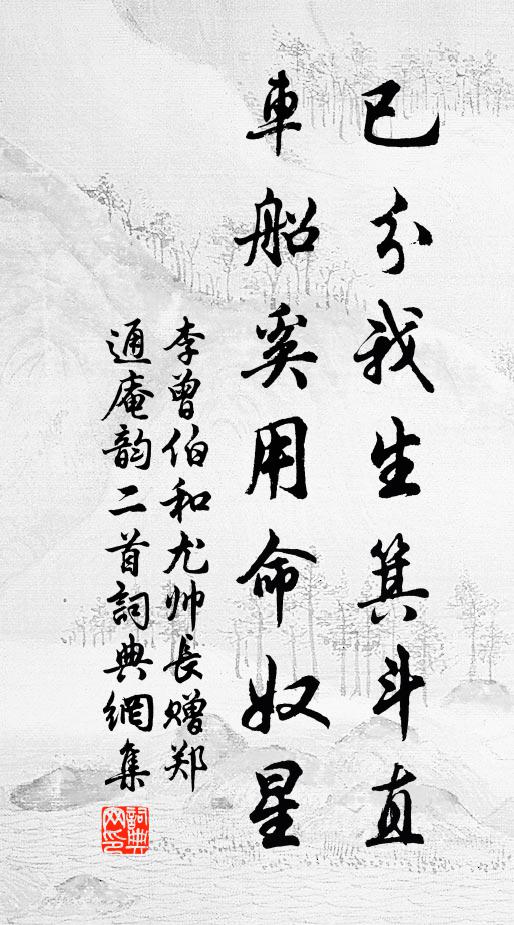 已分我生箕斗直
車船奚用命奴星
李曾伯和尤帅長赠郑
通庵韵二首詞典網集
詞典
网印